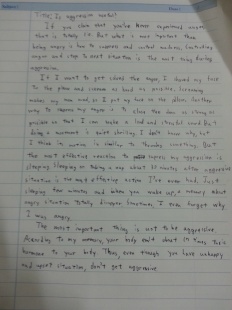 If you claim that you've never experienced anger,
that is totally lie. But what is more important than
being angry is how to controls and control madness, controlling
anger and stop to next situation is the best thing during
aggression.
If I want to get down the anger, I closed my
to the phone and scream as loud as possible, listening
makes my ear and, so I put my head on the pillow. Another
way to express my anger is to close the door as strong as
possible so that I can make a loud and
doing a movement is quite thrilling. I don't know why, but
I think it, action is similar to throwing something. But
the most effective exercise to express my aggression is
sleeping. Sleeping or taking a nap about 30 minutes while aggressive
situation is the most effective action I've ever had. Just
sleeping few minutes and when you wake up, a memory about
angry situation totally disappear. Sometimes, I even forgot why
I was angry.
The most important thing is not to be aggressive.
According to my memory, your body emit about 15 times toxic
hormone to your body. Thus, even though you have unhappy
and upset situation, don't get aggressive